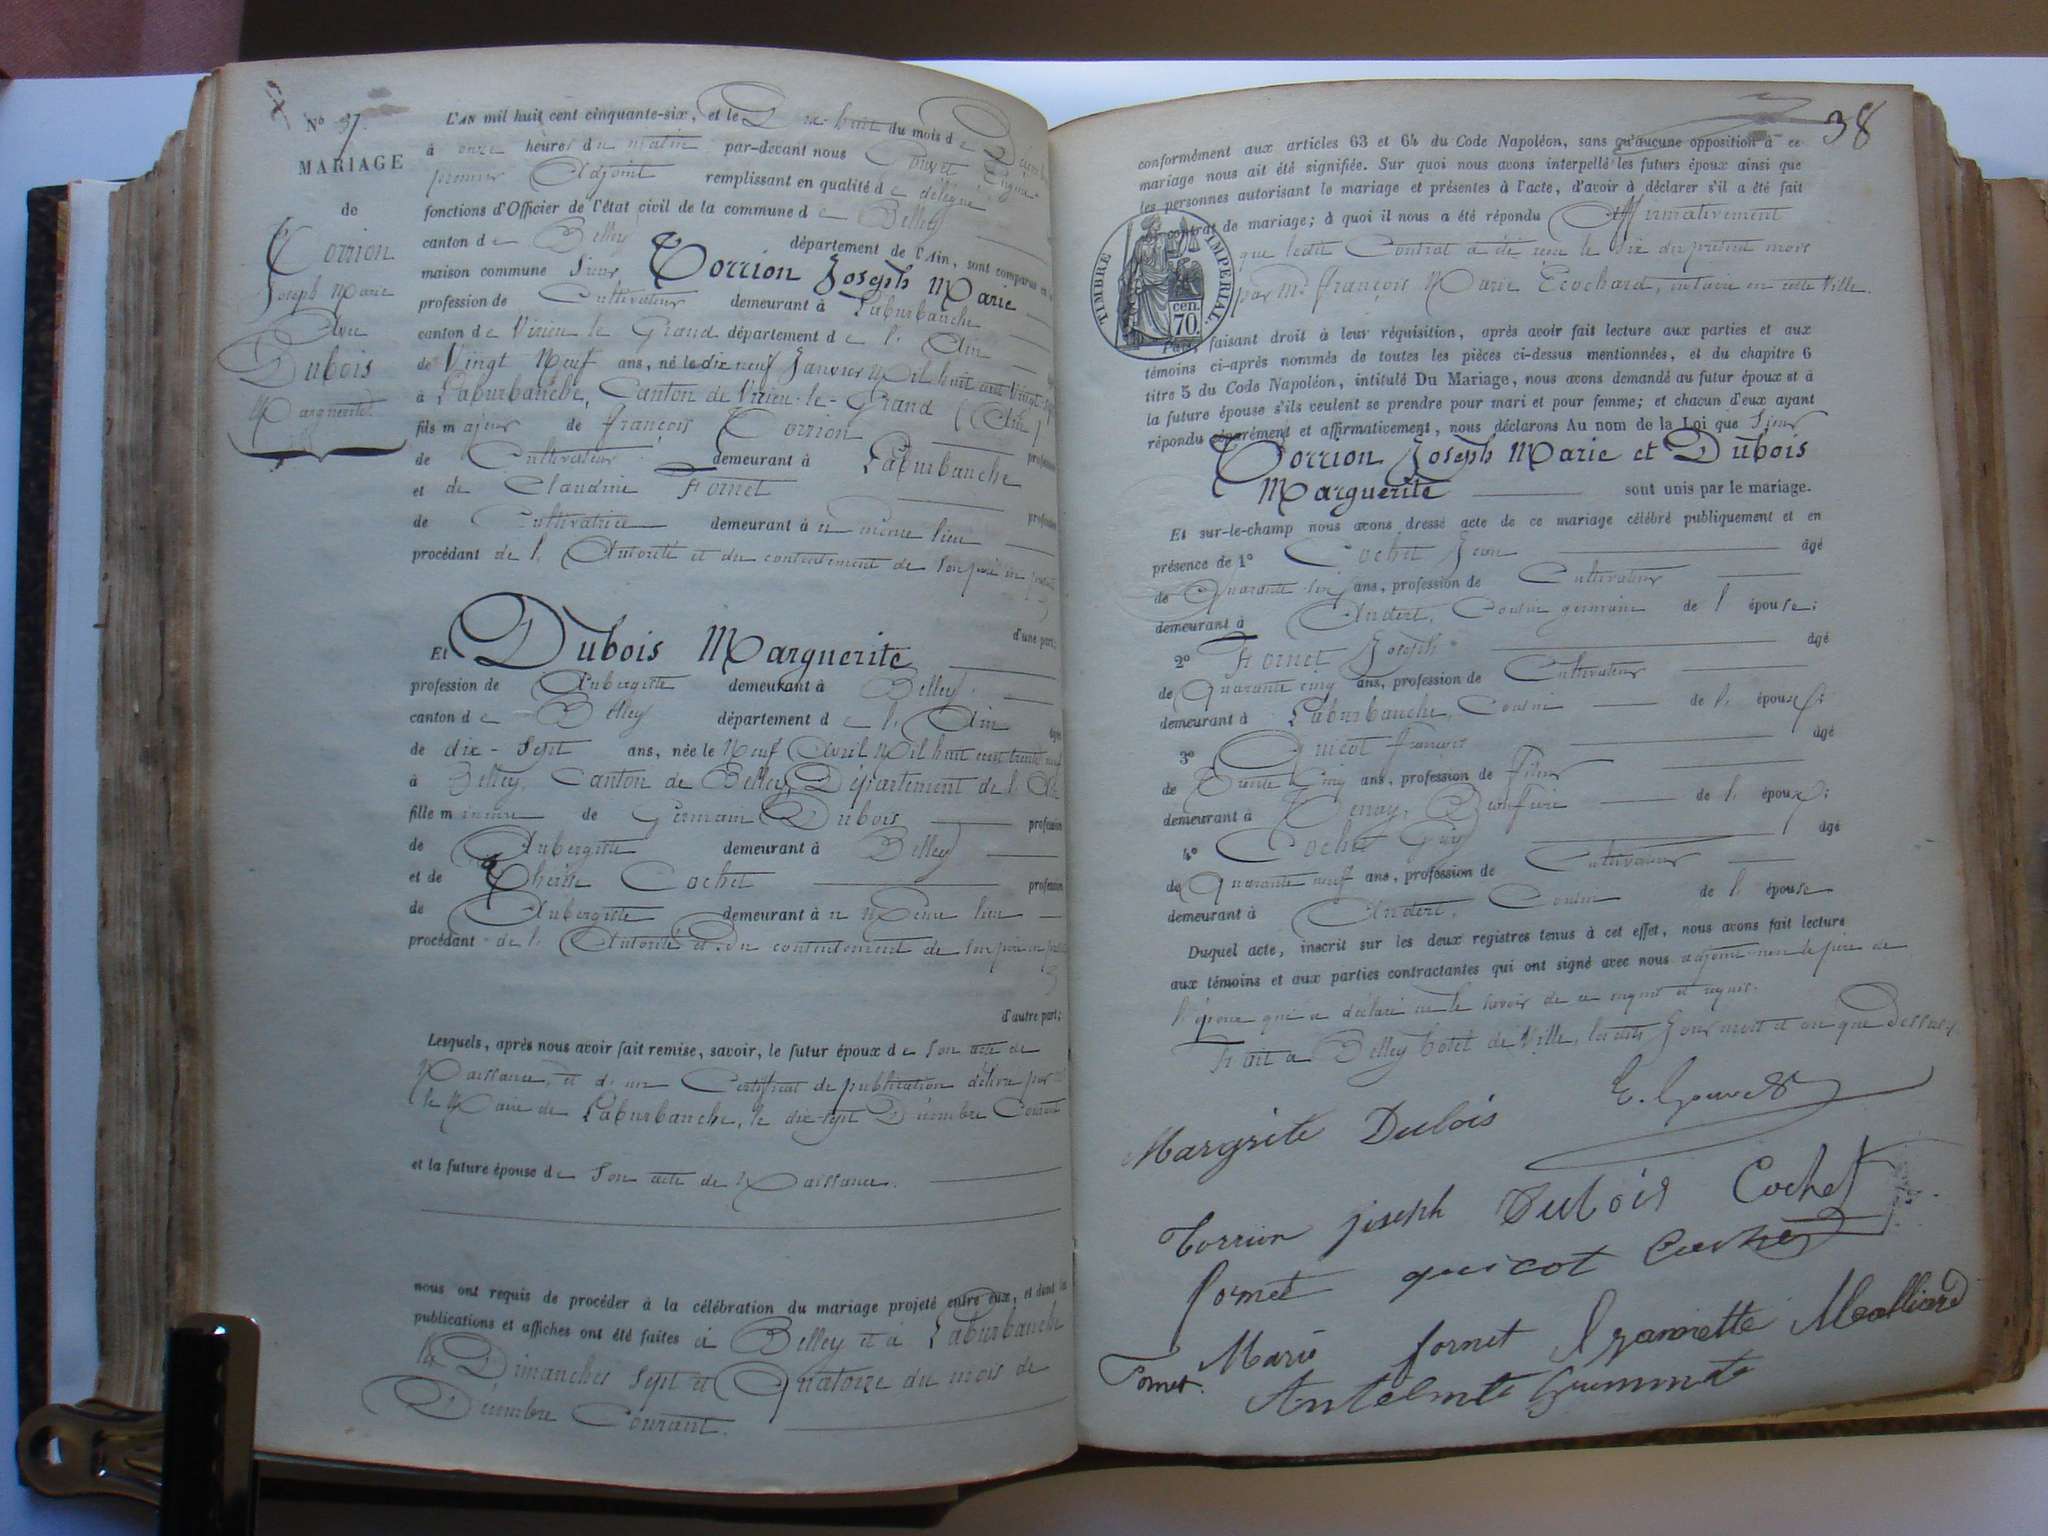 No 37.
MARIAGE
de
Torrion
Joseph Marie
Avec
Dubois
Marguerite
L'AN mil huit cent cinquante-six, et le Dix-huit du mois de Décembre
à onze heures du matin par-devant nous Gouvet
premier Adjoint remplissant en qualité de délégué
fonctions d'Officier de l'état civil de la commune de Belley
canton de Belley département de l'Ain, sont comparus en
maison commune Sieur Torrion Joseph Marie
profession de Cultivateur demeurant à Laburbanche
canton de Virieu le Grand département de l'Ain
de Vingt Neuf ans, né le dix neuf Janvier Mil huit cent Vingt Sept
à Laburbanche, Canton de Virieu-le-Grand (Ain)
fils majeur de françois Torrion profession
de Cultivateur demeurant à Laburbanche
et de Claudine Fornet profession
de Cultivatrice demeurant à u même lieu
procédant de l'Autorité et du contentement de son père ici présent
d'une part;
Et Dubois Marguerite
profession de Aubergiste demeurant à Belley
canton de Belley département de l'Ain âgée
de dix-sept ans, née le Neuf Avril Mil huit cent trente neuf
à Belley, Canton de Belley, Département de l'Ain
fille mineure de Germain Dubois profession
de Aubergiste demeurant à Belley
et de Thérèse Cochet profession
de Aubergiste demeurant à u Même lieu
procédant de l'Autorité et du contentement de son père ici présent
d'autre part;
Lesquels, après nous avoir fait remise, savoir, le futur époux de son acte de
Naissance, et d'un Certificat de publication délivré par
le Maire de Laburbanche, le dix-sept Décembre Courant
et la future épouse de son acte de Naissance.
nous ont requis de procéder à la célébration du mariage projeté entre eux, et dont les
publications et affiches ont été faites à Belley et à Laburbanche
les Dimanches sept et Quatorze du mois de
Décembre Courant.
38
conformément aux articles 63 et 64 du Code Napoléon, sans qu'aucune opposition à ce
mariage nous ait été signifiée. Sur quoi nous avons interpellé les futurs époux ainsi que
les personnes autorisant le mariage et présentes à l'acte, d'avoir à déclarer s'il a été fait
contrat de mariage; à quoi il nous a été répondu Affirmativement
que ledit Contrat a été reçu le dix du présent mois
par Me françois Marie Ecochard, notaire en cette Ville.
TIMBRE IMPERIAL.
cen.
70.
Puis, faisant droit à leur réquisition, après avoir fait lecture aux parties et aux
témoins ci-après nommés de toutes les pièces ci-dessus mentionnées, et du chapitre 6
titre 5 du Code Napoléon, intitulé Du Mariage, nous avons demandé au futur époux et à
la future épouse s'ils veulent se prendre pour mari et pour femme; et chacun d'eux ayant
répondu séparément et affirmativement, nous déclarons Au nom de la Loi que Sieur
Torrion Joseph Marie et Dubois
Marguerite sont unis par le mariage.
Et sur-le-champ nous avons dressé acte de ce mariage célébré publiquement et en
présence de 1° Cochet Jean âgé
de Quarante six ans, profession de Cultivateur
demeurant à Andert, Cousin germain de l'épouse;
2° Fornet Joseph âgé
de Quarante cinq ans, profession de Cultivateur
demeurant à Laburbanche, Cousin de l'époux;
3° Quicot françois âgé
de Trente Cinq ans, profession de fileur
demeurant à Tenay, Beaufrère de l'époux;
4° Cochet Guy âgé
de Quarante neuf ans, profession de Cultivateur
demeurant à Andert, Cousin de l'épouse
Duquel acte, inscrit sur les deux registres tenus à cet effet, nous avons fait lecture
aux témoins et aux parties contractantes qui ont signé avec nous adjoint non le père de
l'époux qui a déclaré ne le savoir de ce enquis et requis.
Fait à Belley hotel de Ville, lesdits Jour mois et an que dessus.
E. Gouvet
Margrite Dubois
Torrion joseph Dubois Cochet
fornet quicot Cochet
Fornet. Marie fornet Jeannette Malliard
Antelmette